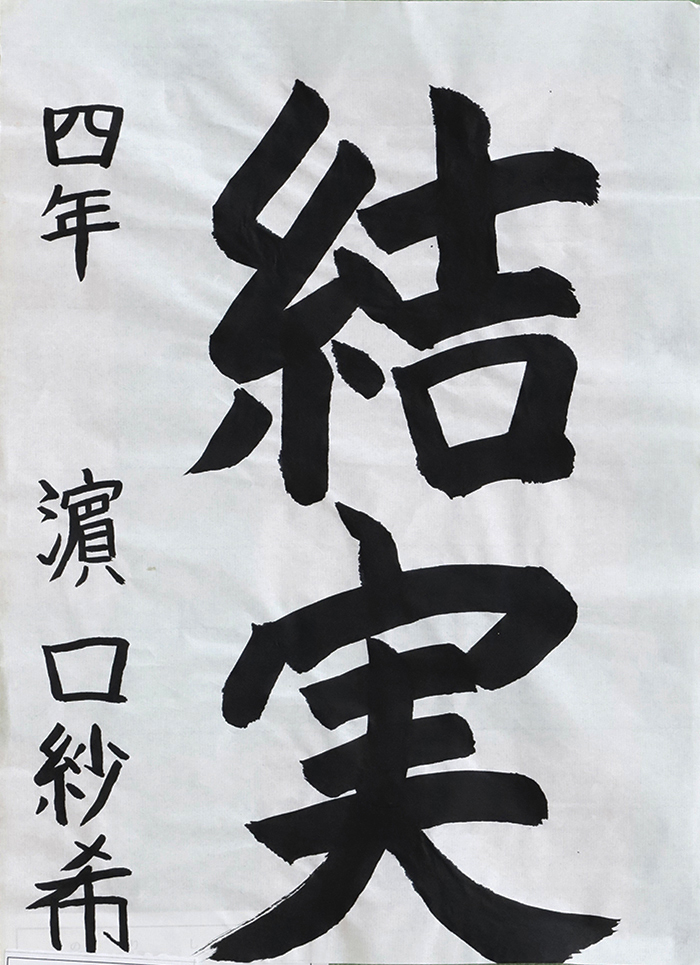 結実
四年 濵口紗希